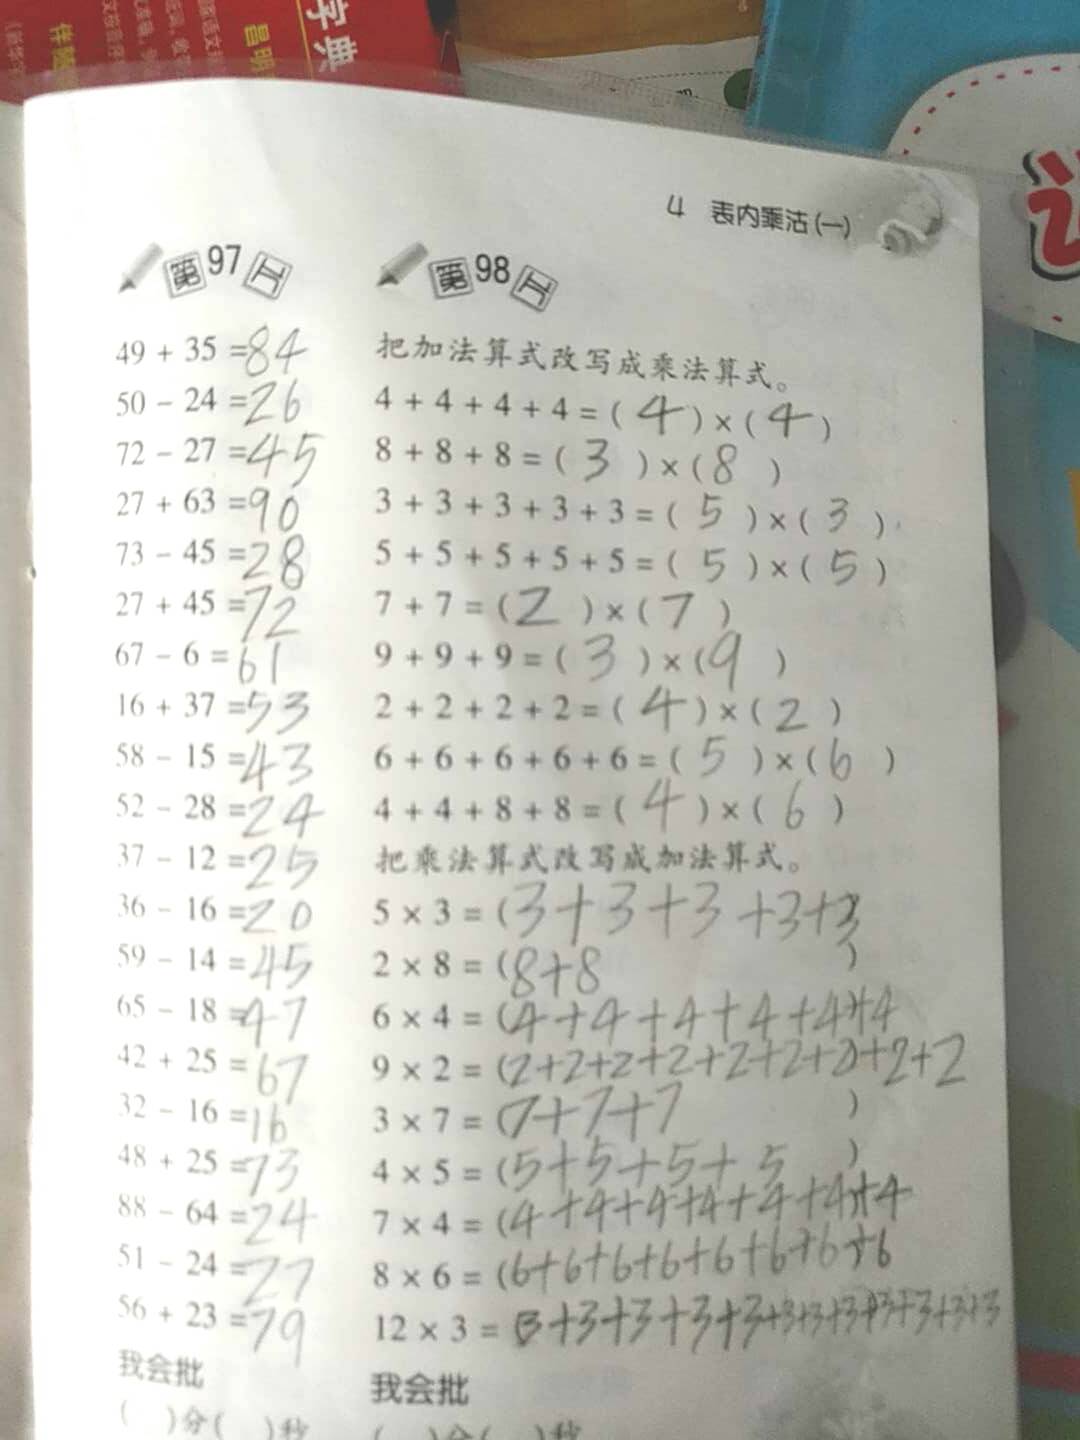 字典
昌明
伴随
4 表内乘法(一)
第97天
49 + 35 =84
50 - 24 =26
72 - 27 =45
27 + 63 =90
73 - 45 =28
27 + 45 =72
67 - 6 =61
16 + 37 =53
58 - 15 =43
52 - 28 =24
37 - 12 =25
36 - 16 =20
59 - 14 =45
65 - 18 =47
42 + 25 =67
32 - 16 =16
48 + 25 =73
88 - 64 =24
51 - 24 =27
56 + 23 =79
我会批
( )分( )秒
第98天
把加法算式改写成乘法算式。
4 + 4 + 4 + 4 = ( 4 ) × ( 4 )
8 + 8 + 8 = ( 3 ) × ( 8 )
3 + 3 + 3 + 3 + 3 = ( 5 ) × ( 3 )
5 + 5 + 5 + 5 + 5 = ( 5 ) × ( 5 )
7 + 7 = ( 2 ) × ( 7 )
9 + 9 + 9 = ( 3 ) × ( 9 )
2 + 2 + 2 + 2 = ( 4 ) × ( 2 )
6 + 6 + 6 + 6 + 6 = ( 5 ) × ( 6 )
4 + 4 + 8 + 8 = ( 4 ) × ( 6 )
把乘法算式改写成加法算式。
5 × 3 = (3+3+3+3+3)
2 × 8 = (8+8 )
6 × 4 = (4+4+4+4+4+4)
9 × 2 = (2+2+2+2+2+2+2+2+2
3 × 7 = (7+7+7 )
4 × 5 = (5+5+5+5 )
7 × 4 = (4+4+4+4+4+4+4)
8 × 6 = (6+6+6+6+6+6+6+6)
12 × 3 = (3+3+3+3+3+3+3+3+3+3+3+3
我会批
( )分( )秒